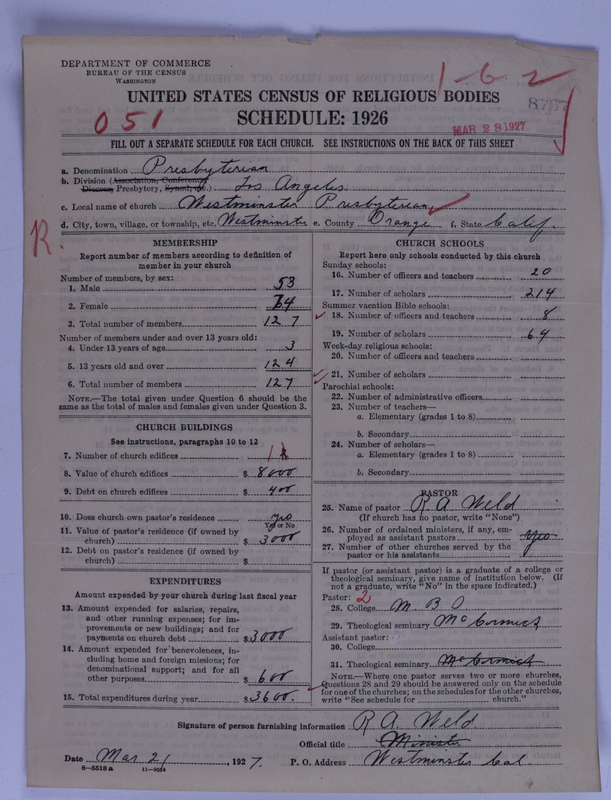 DEPARTMENT OF COMMERCE
BUREAU OF THE CENSUS
WASHINGTON
1-6-2
8767
UNITED STATES CENSUS OF RELIGIOUS BODIES
051
SCHEDULE: 1926
MAR 28 1927
FILL OUT A SEPARATE SCHEDULE FOR EACH CHURCH. SEE INSTRUCTIONS ON THE BACK OF THIS SHEET
a. Denomination Presbyterian
b. Division (Association, Conference, Diocese, Presbytery, Synod, etc.) Los Angeles
c. Local name of church Westminster Presbyterian
d. City, town, village, or township, etc. Westminster e. County Orange f. State Calif.
R.
MEMBERSHIP
Report number of members according to definition of member in your church
Number of members, by sex:
1. Male 53
2. Female 74
3. Total number of members 127
Number of members under and over 13 years old:
4. Under 13 years of age 3
5. 13 years old and over 124
6. Total number of members 127
NOTE.—The total given under Question 6 should be the same as the total of males and females given under Question 3.
CHURCH BUILDINGS
See instructions, paragraphs 10 to 12
7. Number of church edifices 1
8. Value of church edifices $ 8000
9. Debt on church edifices $ 400
10. Does church own pastor's residence yes
Yes or No
11. Value of pastor's residence (if owned by church) $ 3000
12. Debt on pastor's residence (if owned by church) $
EXPENDITURES
Amount expended by your church during last fiscal year
13. Amount expended for salaries, repairs, and other running expenses; for improvements or new buildings; and for payments on church debt $ 3000
14. Amount expended for benevolences, including home and foreign missions; for denominational support; and for all other purposes $ 600
15. Total expenditures during year $ 3600.
CHURCH SCHOOLS
Report here only schools conducted by this church
Sunday schools:
16. Number of officers and teachers 20
17. Number of scholars 214
Summer vacation Bible schools:
18. Number of officers and teachers 8
19. Number of scholars 64
Week-day religious schools:
20. Number of officers and teachers
21. Number of scholars
Parochial schools:
22. Number of administrative officers
23. Number of teachers—
a. Elementary (grades 1 to 8)
b. Secondary
24. Number of scholars—
a. Elementary (grades 1 to 8)
b. Secondary
PASTOR
25. Name of pastor R A Weld
(If church has no pastor, write "None")
26. Number of ordained ministers, if any, employed as assistant pastors
27. Number of other churches served by the pastor or his assistants
If pastor (or assistant pastor) is a graduate of a college or theological seminary, give name of institution below. (If not a graduate, write "No" in the space indicated.)
Pastor: 2
28. College
29. Theological seminary McCormick
Assistant pastor:
30. College
31. Theological seminary McCormick
NOTE.—Where one pastor serves two or more churches, Questions 28 and 29 should be answered only on the schedule for one of the churches; on the schedules for the other churches, write "See schedule for church."
Signature of person furnishing information R A Weld
Official title Minister
Date Mar 21, 1927. P. O. Address Westminster Cal
8—5518a 11—9034